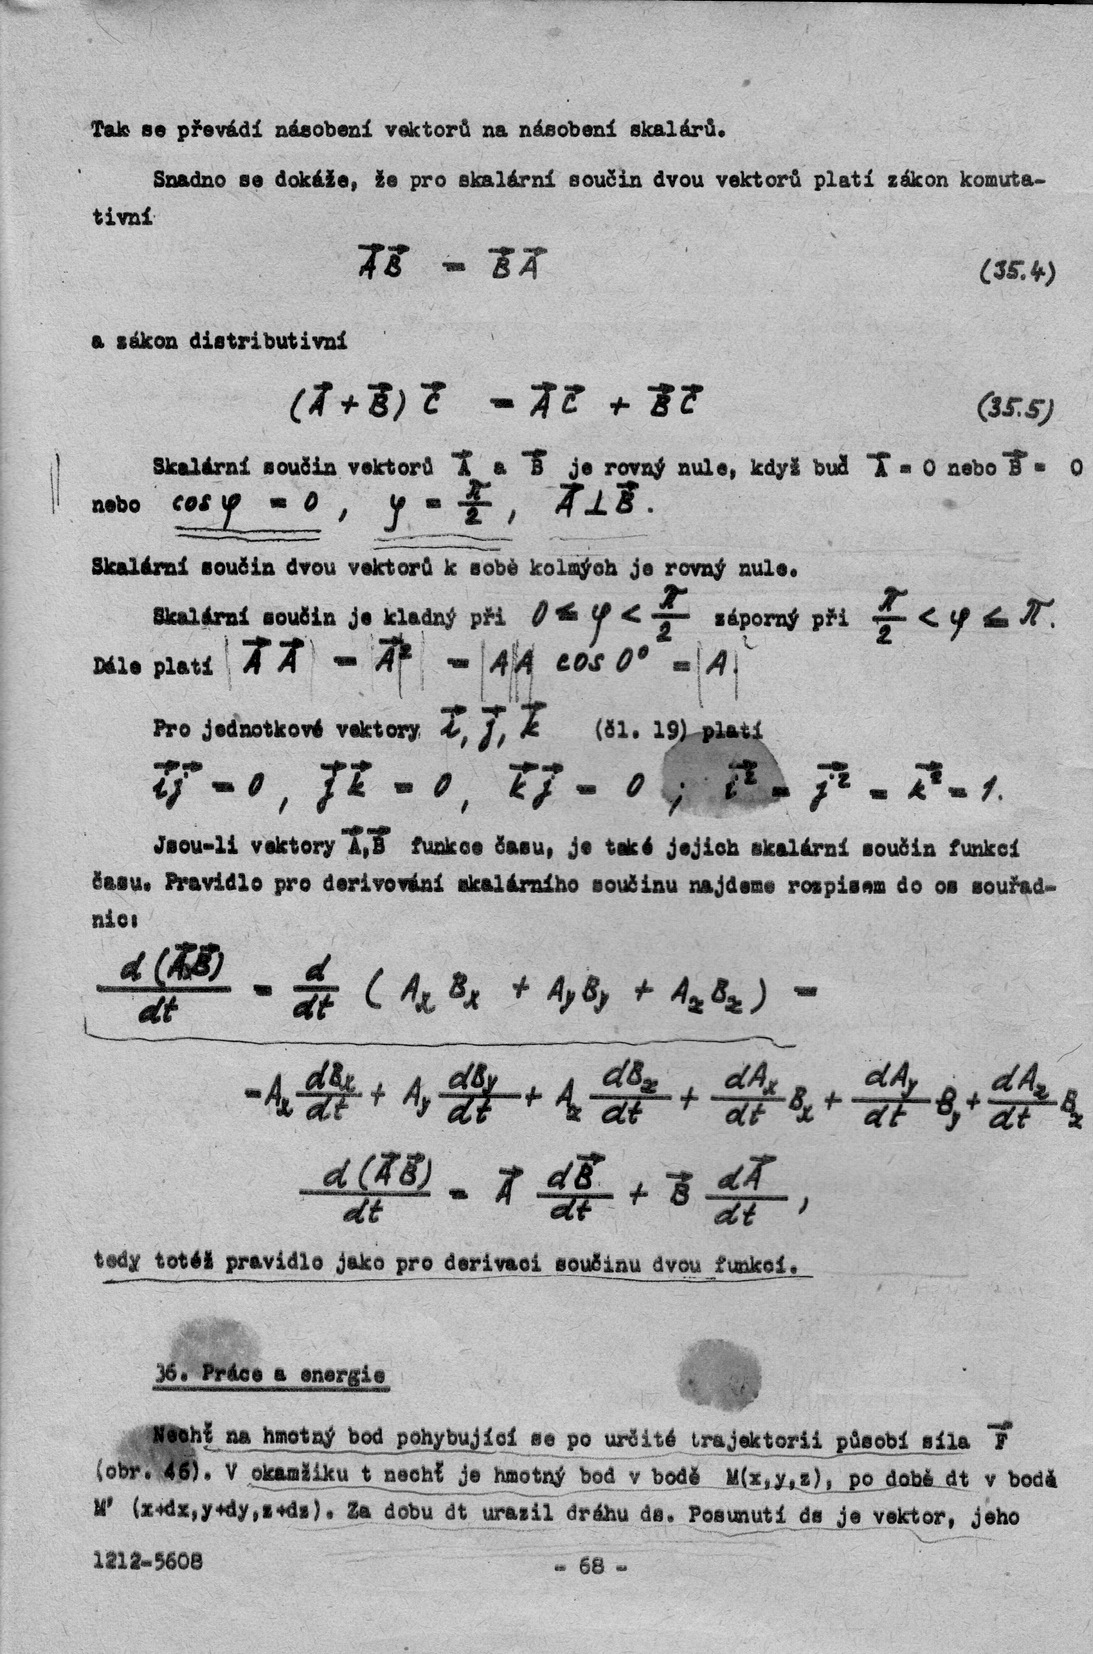 Tak se převádí násobení vektorů na násobení skalárů.
Snadno se dokáže, že pro skalární součin dvou vektorů platí zákon komuta-
tivní
A⃗B⃗ = B⃗A⃗ (35.4)
a zákon distributivní
(A⃗ + B⃗) C⃗ = A⃗C⃗ + B⃗C⃗ (35.5)
Skalární součin vektorů A⃗ a B⃗ je rovný nule, když buď A⃗ = 0 nebo B⃗ = 0
nebo cos φ = 0, φ = π/2, A⃗ ⊥ B⃗.
Skalární součin dvou vektorů k sobě kolmých je rovný nule.
Skalární součin je kladný při 0 ≤ φ < π/2 záporný při π/2 < φ ≤ π.
Dále platí |A⃗ A⃗| = |A⃗²| = |A||A| cos 0° = |A.|
Pro jednotkové vektory i⃗, j⃗, k⃗ (čl. 19) platí
i⃗j⃗ = 0, j⃗k⃗ = 0, k⃗j⃗ = 0 ; i⃗² = j⃗² = k⃗² = 1.
Jsou-li vektory A⃗,B⃗ funkce času, je také jejich skalární součin funkcí
času. Pravidlo pro derivování skalárního součinu najdeme rozpisem do os souřad-
nic:
d(A⃗B⃗)/dt = d/dt ( AₓBₓ + A_yB_y + A_zB_z ) =
= Aₓ dBₓ/dt + A_y dB_y/dt + A_z dB_z/dt + dAₓ/dt Bₓ + dA_y/dt B_y + dA_z/dt B_z
d(A⃗B⃗)/dt = A⃗ dB⃗/dt + B⃗ dA⃗/dt ,
tedy totéž pravidlo jako pro derivaci součinu dvou funkcí.
36. Práce a energie
Nechť na hmotný bod pohybující se po určité trajektorii působí síla F⃗
(obr. 46). V okamžiku t nechť je hmotný bod v bodě M(x,y,z), po době dt v bodě
M' (x+dx,y+dy,z+dz). Za dobu dt urazil dráhu ds. Posunutí ds je vektor, jeho
1212-5608
- 68 -